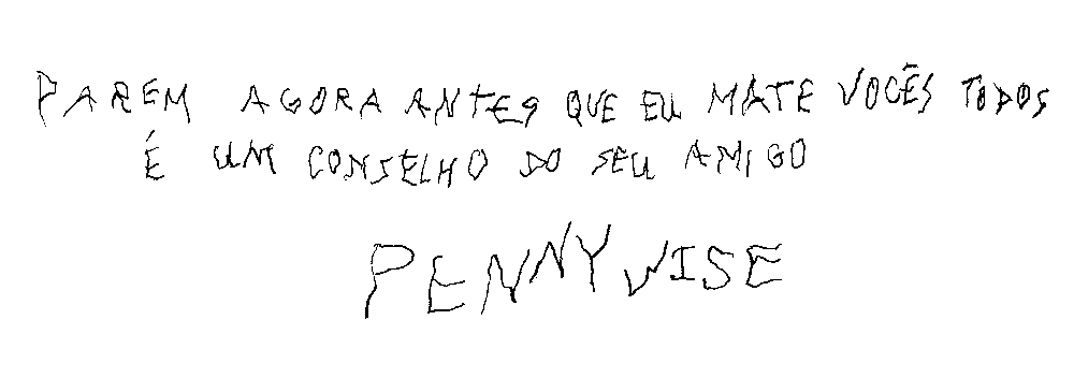 PAREM AGORA ANTES QUE EU MATE VOCÊS TODOS
É UM CONSELHO DO SEU AMIGO
PENNYWISE